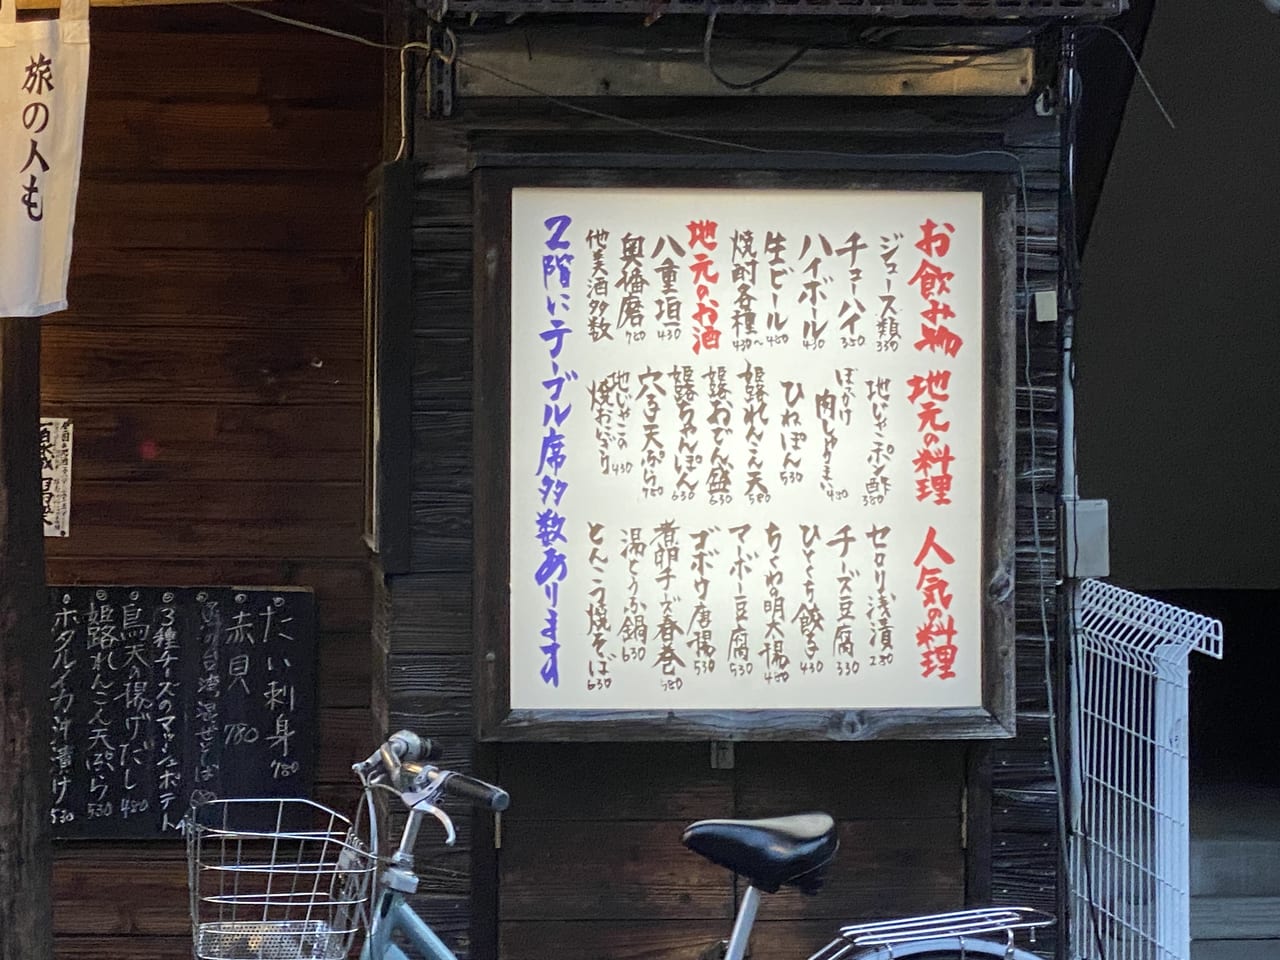 お飲み物
ジュース類 330
チューハイ 350
ハイボール 430
生ビール 480
焼酎各種 430〜
地元のお酒
八重垣 430
奥播磨 780
他美酒多数
地元の料理
地じゃこポン酢 380
ぼっかけ
肉じゅうまい 430
ひねぽん 530
姫路れんこん天 580
姫路おでん盛 630
姫路ちゃんぽん 630
穴子天ぷら 780
地じゃこの
焼おにぎり 430
人気の料理
セロリ浅漬 280
チーズ豆腐 330
ひとくち餃子 430
ちくわ明太揚 480
マーボー豆腐 530
ゴボウ唐揚 530
煮卵チーズ春巻 580
湯とうふ鍋 630
とんこつ焼そば 630
2階にテーブル席多数あります
旅の人も
たい刺身 780
赤貝 780
台湾混ぜそば
3種チーズのマッシュポテト
鳥天の揚げだし 480
姫路れんこん天ぷら 530
ホタルイカ沖漬け 530